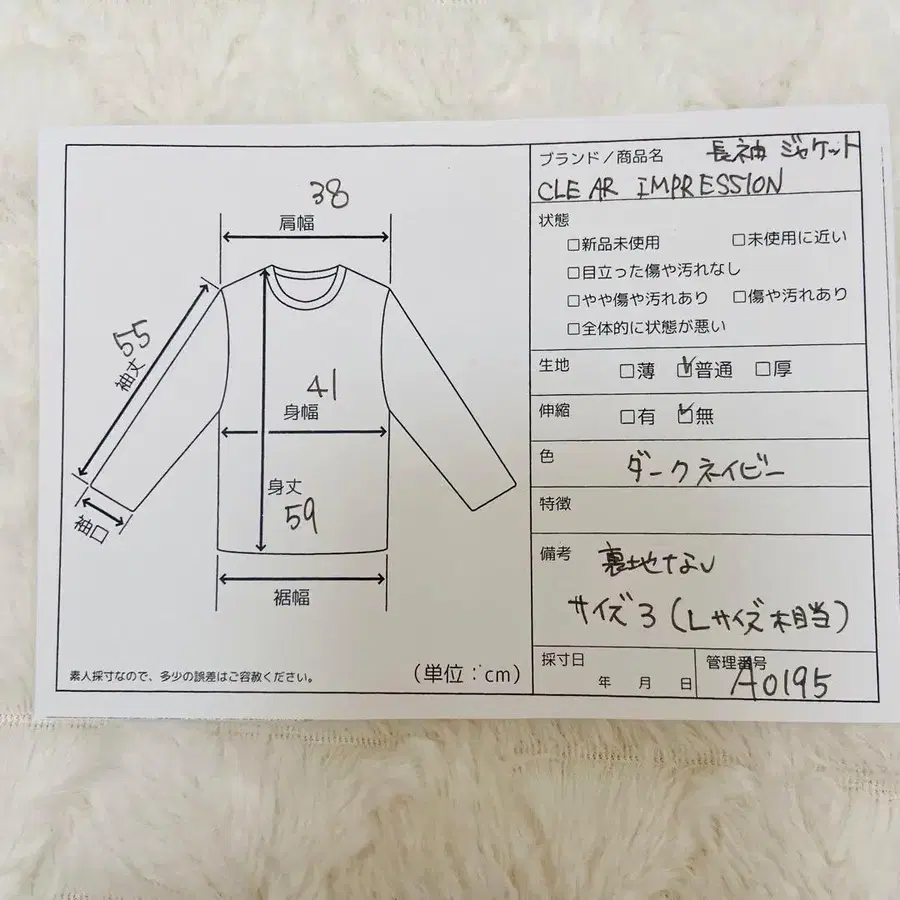 38
肩幅
55
袖丈
41
身幅
身丈
59
袖口
裾幅
素人採寸なので、多少の誤差はご容赦ください。
(単位:cm)
ブランド/商品名 長袖 ジャケット
CLEAR IMPRESSION
状態
□新品未使用 □未使用に近い
□目立った傷や汚れなし
□やや傷や汚れあり □傷や汚れあり
□全体的に状態が悪い
生地 □薄 ☑普通 □厚
伸縮 □有 ☑無
色
ダークネイビー
特徴
備考 裏地なし
サイズ3(Lサイズ相当)
採寸日
年 月 日
管理番号
A0195